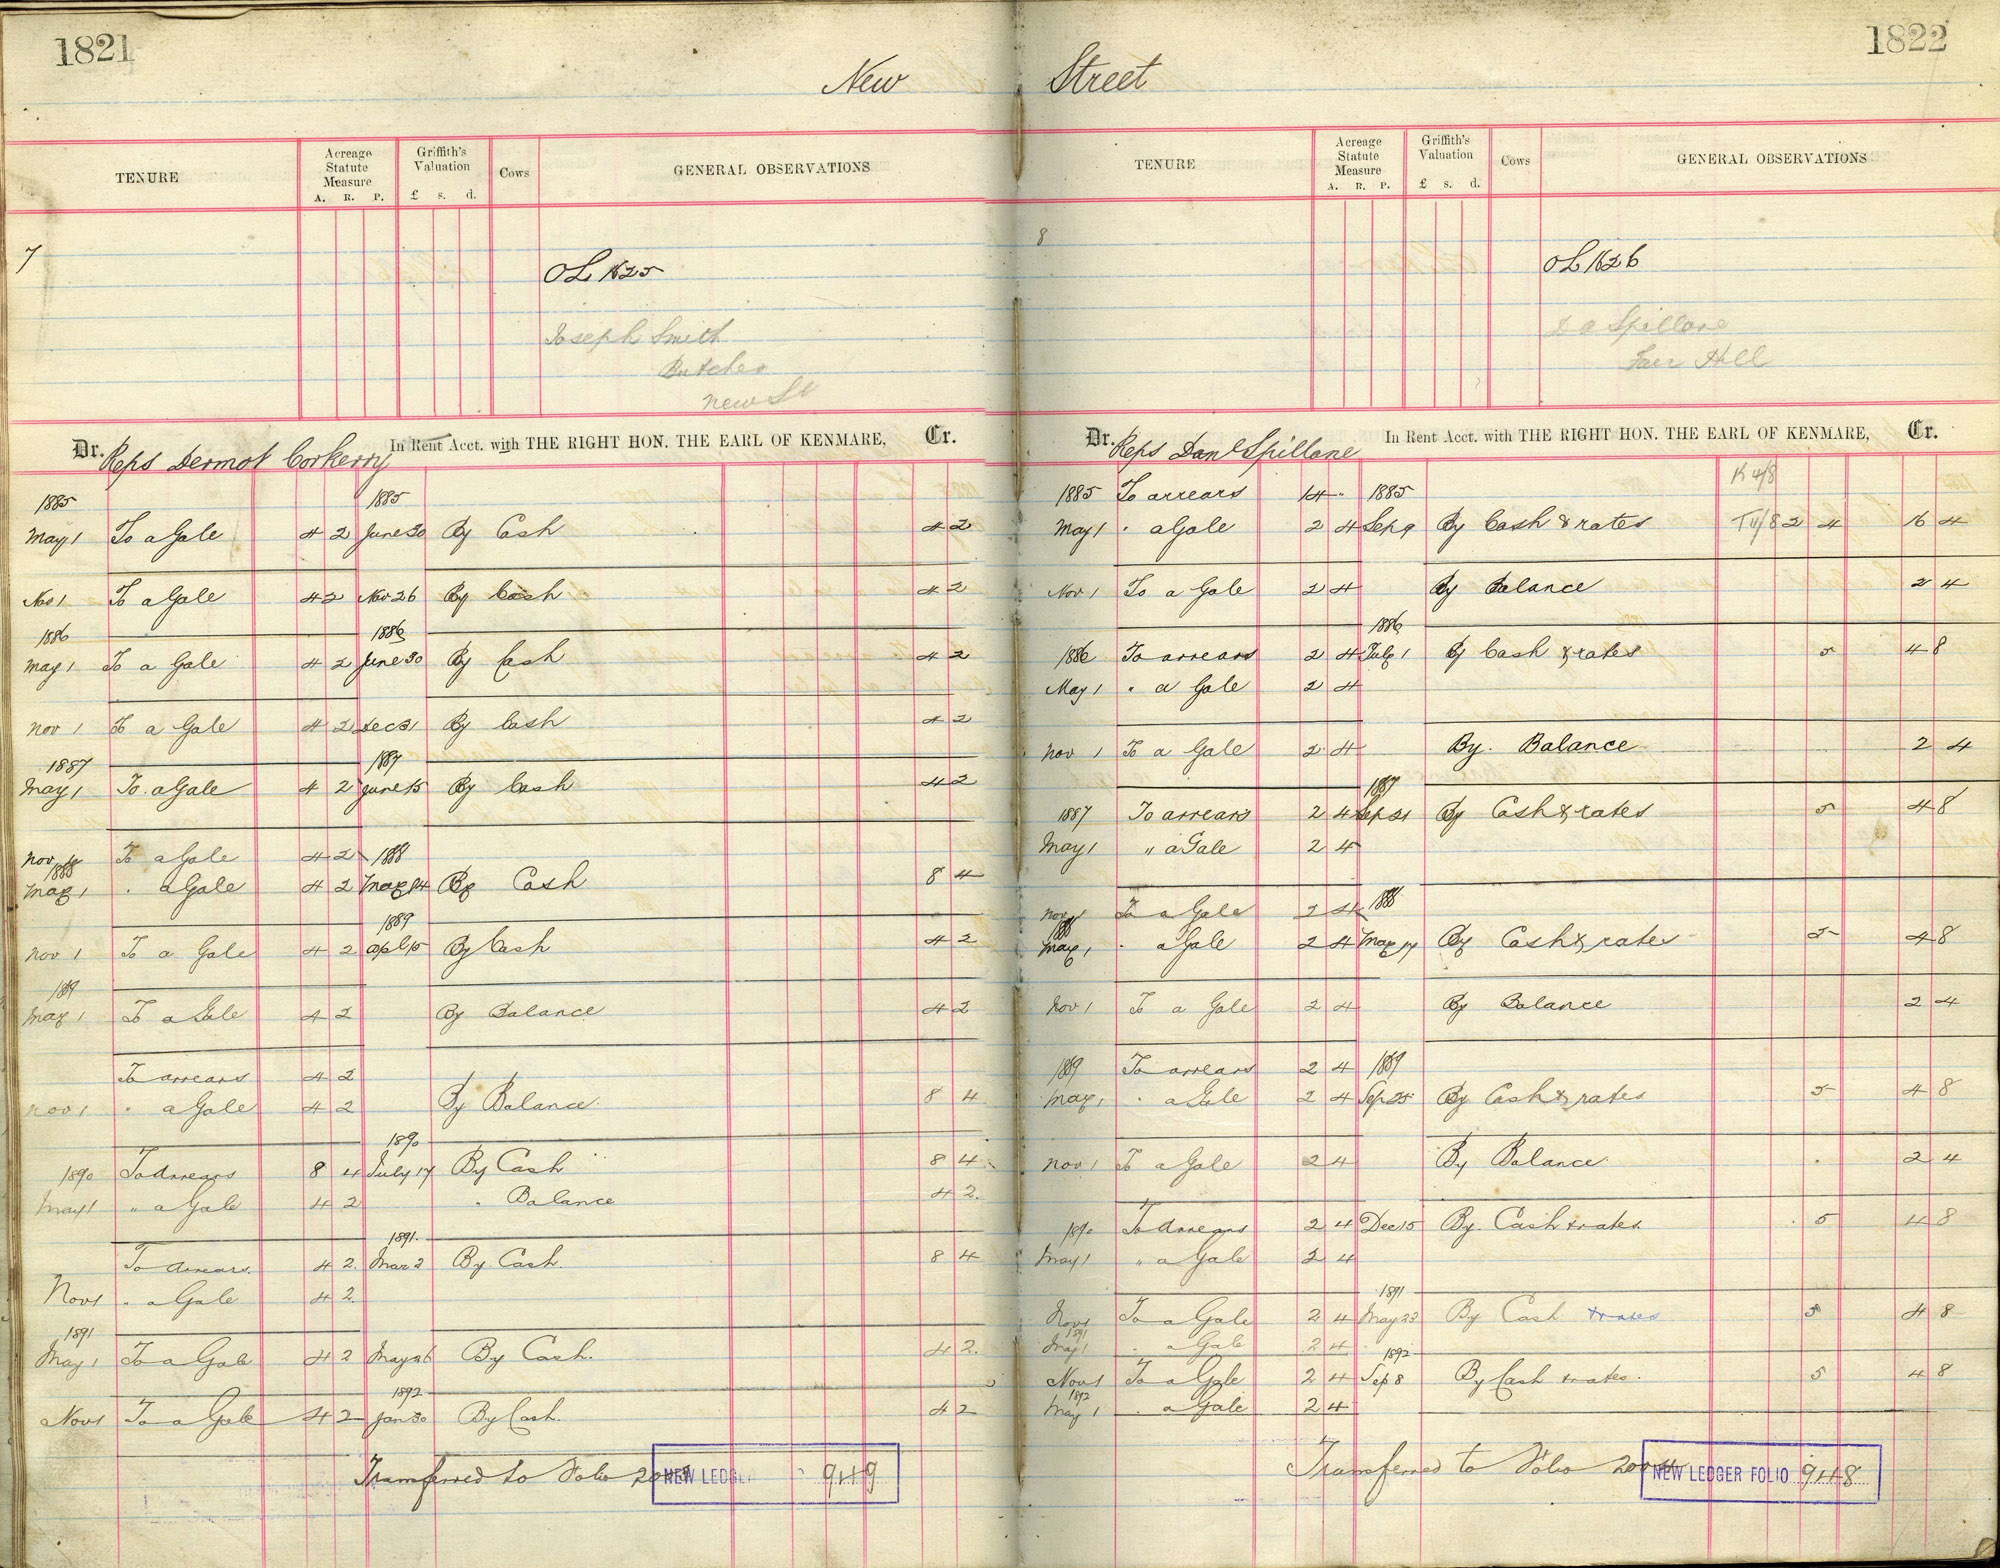 1821
New
TENURE
Acreage Statute Measure
A. R. P.
Griffith's Valuation
£ s. d.
Cows
GENERAL OBSERVATIONS
7
OL 1625
Joseph Smith
Butcher
New St
Dr. Reps Dermot Corkerry In Rent Acct. with THE RIGHT HON. THE EARL OF KENMARE, Cr.
1885 1885
May 1 To a Gale 4 2 June 30 By Cash 4 2
Nov 1 To a Gale 4 2 Nov 26 By Cash 4 2
1886 1886
May 1 To a Gale 4 2 June 30 By Cash 4 2
Nov 1 To a Gale 4 2 Dec 31 By Cash 4 2
1887 1887
May 1 To a Gale 4 2 June 15 By Cash 4 2
Nov 1 To a Gale 4 2 1888
1888
May 1 " a Gale 4 2 May 14 By Cash 8 4
1889
Nov 1 To a Gale 4 2 Apl 15 By Cash 4 2
1889
May 1 To a Gale 4 2 By Balance 4 2
To arrears 4 2
Nov 1 " a Gale 4 2 By Balance 8 4
1890
1890 To Arrears 8 4 July 17 By Cash 8 4
May 1 " a Gale 4 2 " Balance 4 2
1891
To Arrears 4 2 Mar 2 By Cash 8 4
Nov 1 " a Gale 4 2
1891
May 1 To a Gale 4 2 May 26 By Cash 4 2
1892
Nov 1 To a Gale 4 2 Jan 30 By Cash 4 2
Transferred to Folio
NEW LEDGER 949
1822
Street
TENURE
Acreage Statute Measure
A. R. P.
Griffith's Valuation
£ s. d.
Cows
GENERAL OBSERVATIONS
8
OL 1626
Spillane
Fair Hill
Dr. Reps Danl Spillane In Rent Acct. with THE RIGHT HON. THE EARL OF KENMARE, Cr.
K 4/8
1885 To arrears 14 " 1885
May 1 " a Gale 2 4 Sep 9 By Cash & rates 2 4 16 4
Nov 1 To a Gale 2 4 By Balance 2 4
1886
1886 To arrears 2 4 July 1 By Cash & rates 5 4 8
May 1 " a Gale 2 4
Nov 1 To a Gale 2 4 By Balance 2 4
1887
1887 To arrears 2 4 Sep 21 By Cash & rates 5 4 8
May 1 " a Gale 2 4
Nov 1 To a Gale 2 4 1888
1888
May 1 " a Gale 2 4 May 17 By Cash & rates 5 4 8
Nov 1 To a Gale 2 4 By Balance 2 4
1889 To arrears 2 4 1889
May 1 " a Gale 2 4 Sep 25 By Cash & rates 5 4 8
Nov 1 To a Gale 2 4 By Balance 2 4
1890 To Arrears 2 4 Dec 15 By Cash & rates 5 4 8
May 1 " a Gale 2 4
1891
Nov 1 To a Gale 2 4 May 23 By Cash & rates 5 4 8
1891
May 1 " a Gale 2 4
1892
Nov 1 To a Gale 2 4 Sep 8 By Cash & rates 5 4 8
1892
May 1 " a Gale 2 4
Transferred to Folio 2004
NEW LEDGER FOLIO 948